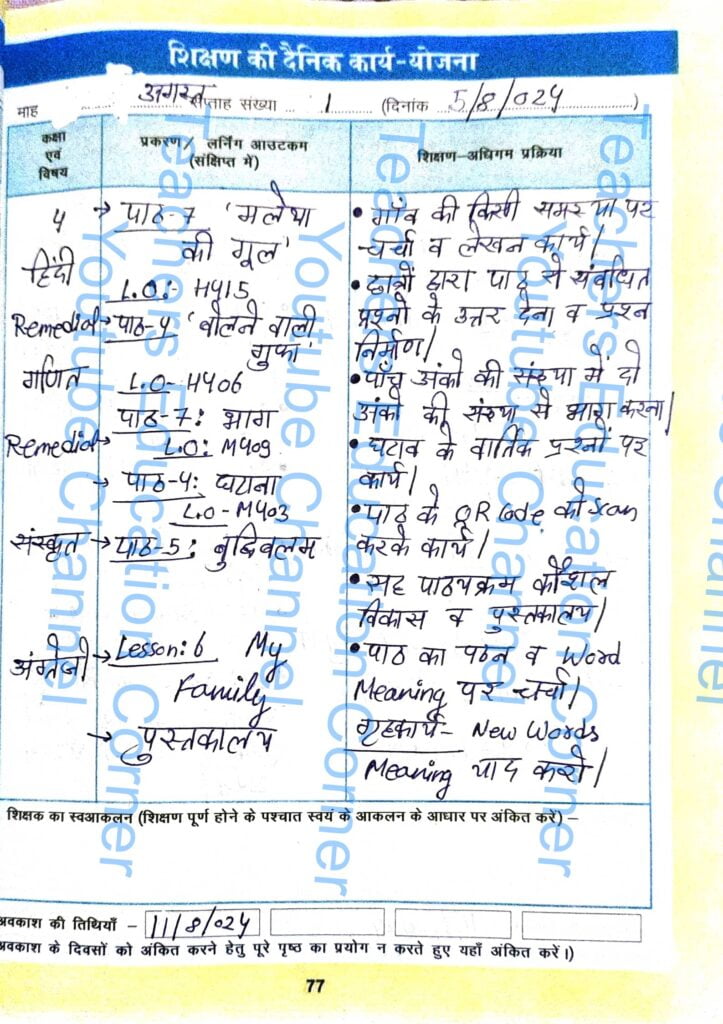 शिक्षण की दैनिक कार्य-योजना
माह अगस्त सप्ताह संख्या ... 1 (दिनांक 5/8/024)
कक्षा एवं विषय
प्रकरण/ लर्निंग आउटकम (संक्षिप्त में)
शिक्षण-अधिगम प्रक्रिया
4 → पाठ-7 'मलेथा
की गूल'
हिंदी
L.O:- H415
Remedial → पाठ-4 'बोलने वाली
गुफा'
गणित L.O- H406
पाठ-7: भाग
Remedial L.O: M409
→ पाठ-4: घटाना
L.O- M403
संस्कृत → पाठ-5: बुद्धिबलम
अंग्रेजी → Lesson: 6 My
Family
→ पुस्तकालय
• गाँव की किसी समस्या पर
चर्चा व लेखन कार्य।
• छात्रों द्वारा पाठ से संबंधित
प्रश्नों के उत्तर देना व प्रश्न
निर्माण।
• पाँच अंको की संख्या में दो
अंको की संख्या से भाग करना।
• घटाव के वार्तिक प्रश्नों पर
कार्य।
• पाठ के QR Code को Scan
करके कार्य।
• सह पाठ्यक्रम कौशल
विकास व पुस्तकालय।
• पाठ का पठन व Word
Meaning पर चर्चा।
गृहकार्य- New Words
Meaning याद करो।
शिक्षक का स्वआकलन (शिक्षण पूर्ण होने के पश्चात स्वयं के आकलन के आधार पर अंकित करें) –
अवकाश की तिथियाँ - 11/8/024
अवकाश के दिवसों को अंकित करने हेतु पूरे पृष्ठ का प्रयोग न करते हुए यहाँ अंकित करें।)
77
Teachers Education Corner
Youtube Channel
Teachers Education Corner
Youtube Channel
Teachers Education Corner
Youtube Channel